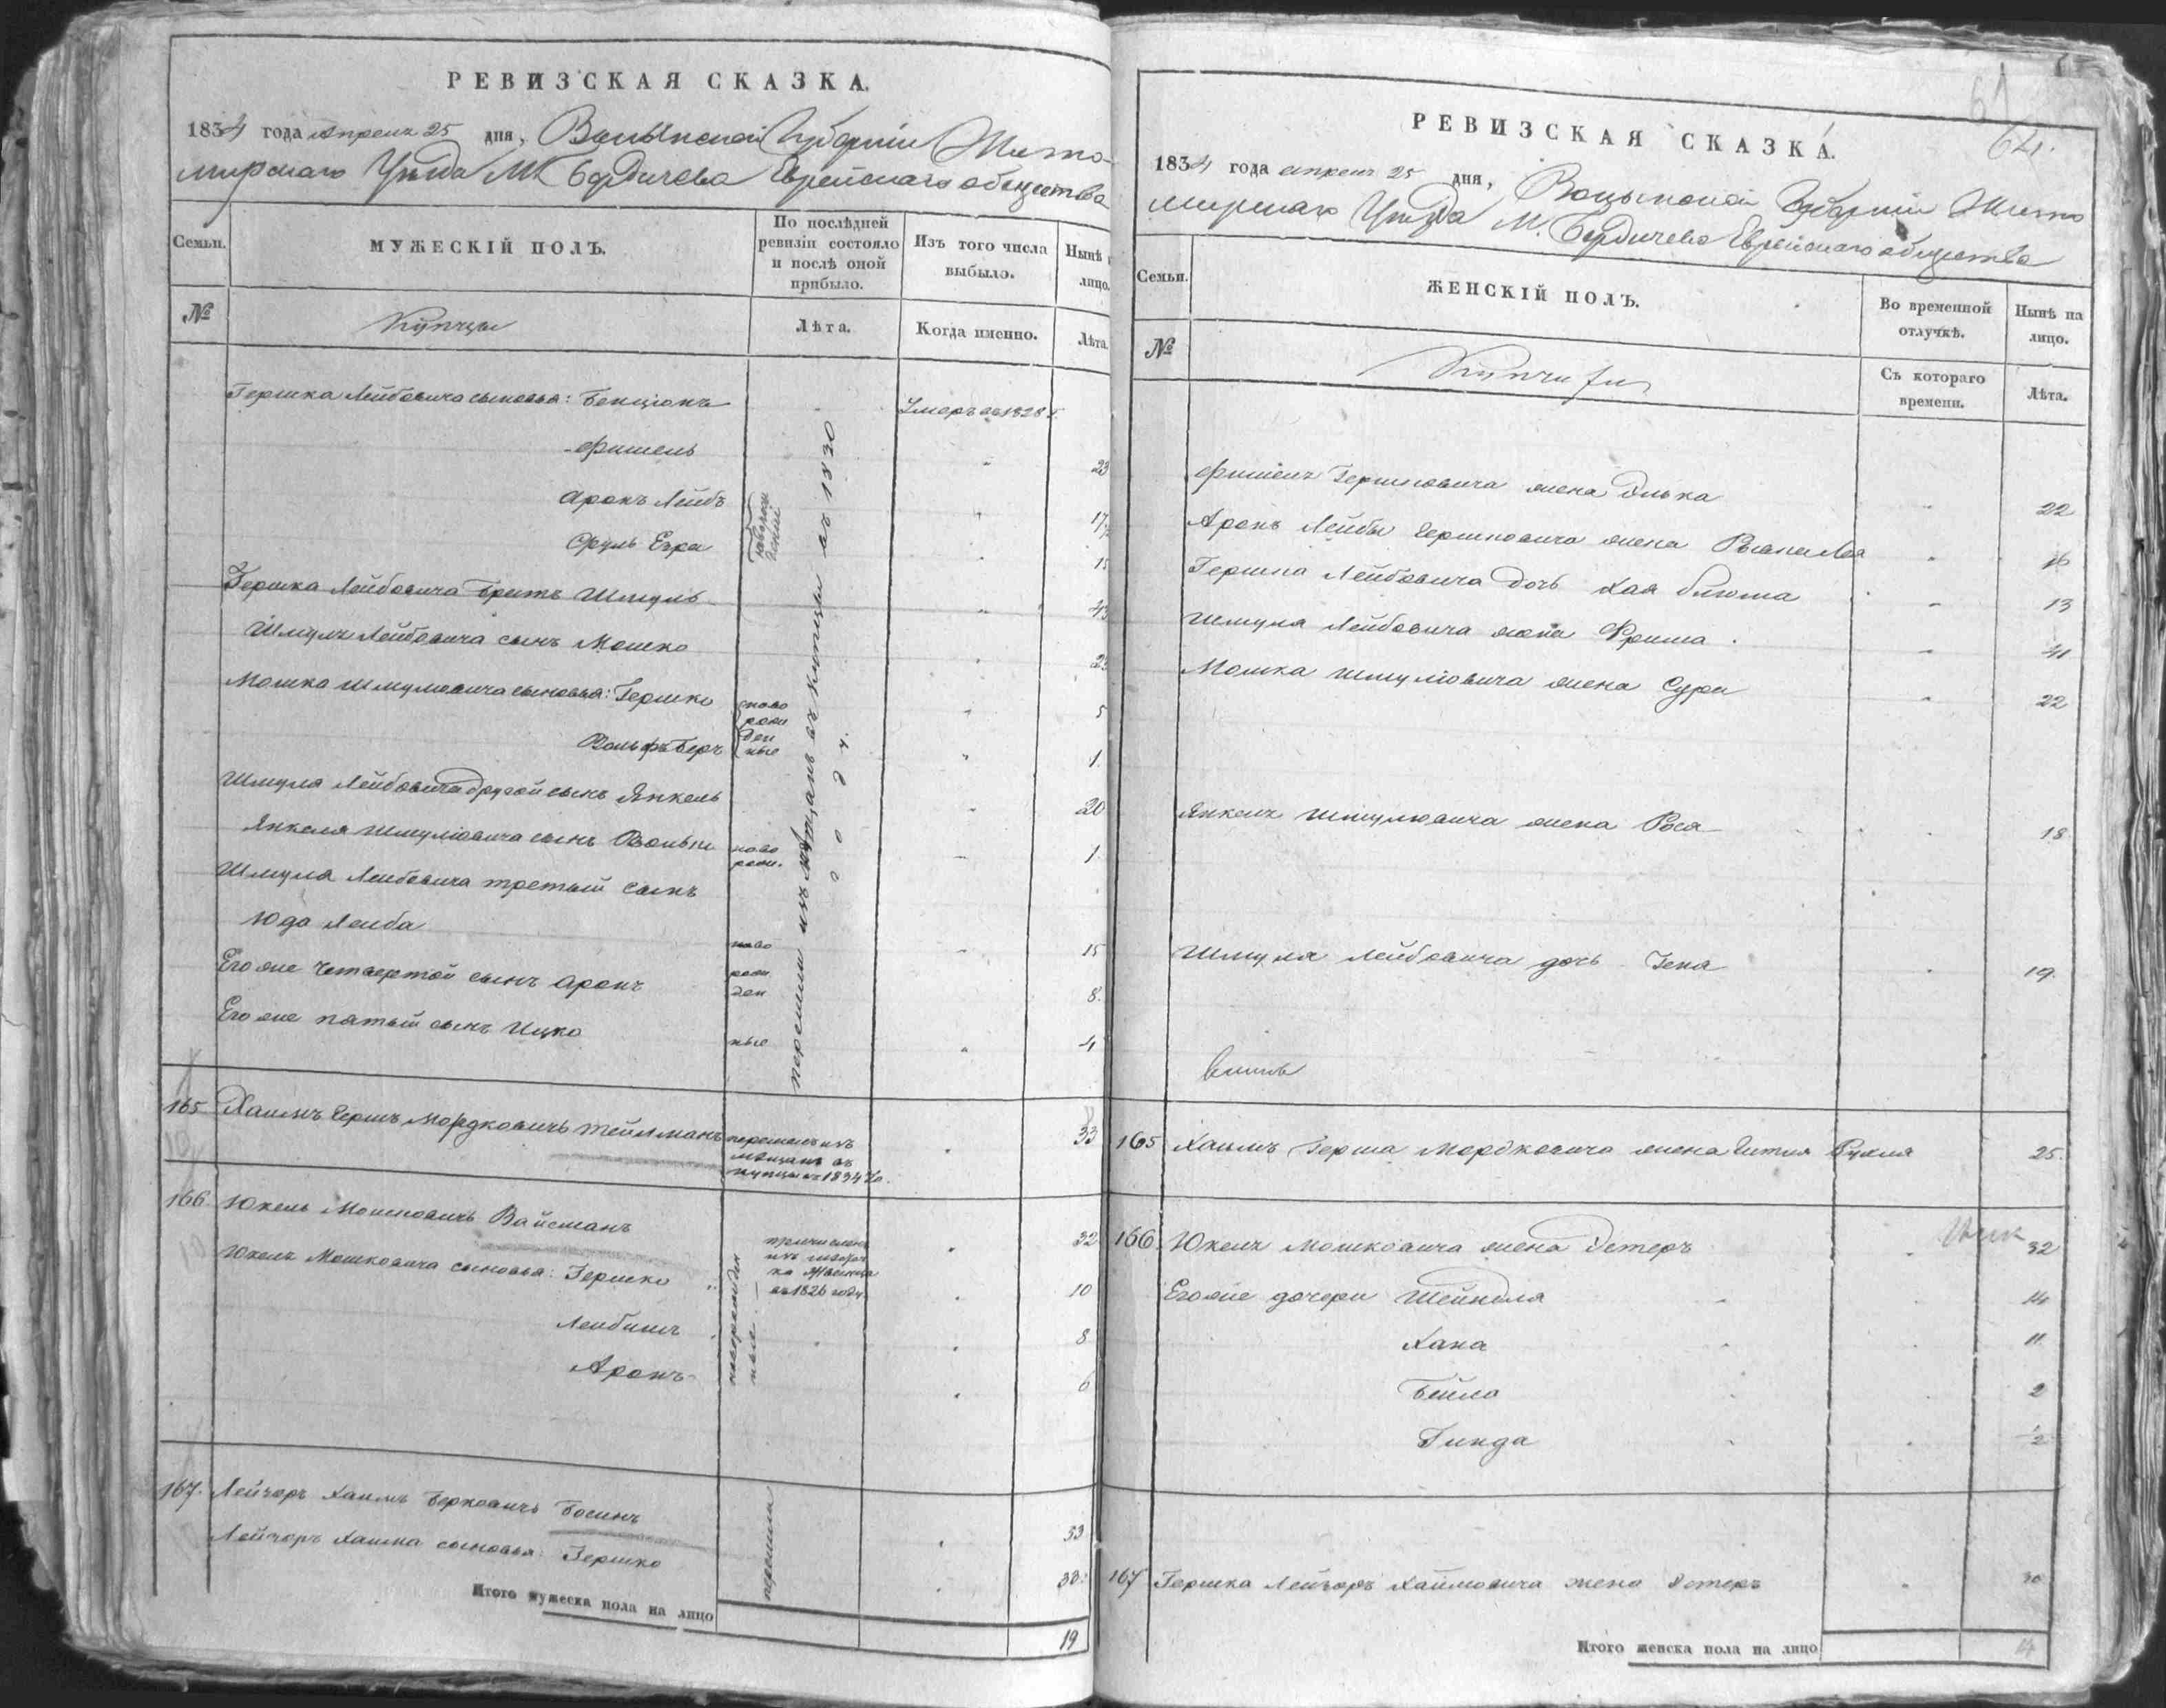 РЕВИЗСКАЯ СКАЗКА.
1834 года Апреля 25 дня, Волынской Губерніи Жито-
мирскаго Уѣзда М. Бердичева Еврейскаго общества
Семьи. МУЖЕСКІЙ ПОЛЪ. По послѣдней ревизіи состояло и послѣ оной прибыло. Изъ того числа выбыло. Нынѣ лицо.
№ Купцы Лѣта. Когда именно. Лѣта.
Гершка Лейбовича сыновья: Бенціонъ Умеръ въ 1828 г.
Фишель 23
Аронъ Лейбъ 17
Сруль 15
Гершка Лейбовича братъ Шмуль 43
Шмуля Лейбовича сынъ Мошко
Мошка Шмулювича сыновья: Гершко 5
Вольфъ Беръ 1.
ново
рож
ден
ные
Шмуля Лейбовича другой сынъ Янкель 20
Янкеля Шмулювича сынъ Вольки ново рож. 1.
Шмуля Лейбовича третьій сынъ
Юда Лейба 15
Его же четвертой сынъ Аронъ 8.
Его же пятый сынъ Ицко 4
ново
рож
ден
ные
перешли изъ мѣщанъ въ купцы въ 1830
году.
165 Хаимъ Гершъ Мордковичъ Тейлманъ перешелъ изъ мѣщанъ въ купцы въ 1834 го. 33
166. Юкель Мошковичъ Вайсманъ 32
причисленъ
въ 1826 году.
Юкеля Мошковича сыновья: Гершко 10
Лейбишъ 8
Аронъ 6
новорожден
ные
167. Лейзоръ Хаимъ Берковичъ Босинъ 53
Лейзоръ Хаима сыновья: Гершко 30.
перешли
Итого мужеска пола на лицо 19
61
62.
РЕВИЗСКАЯ СКАЗКА.
1834 года апреля 25 дня, Волынской Губерніи Жито
мирскаго Уѣзда М. Бердичева Еврейскаго общества
Семьи. ЖЕНСКІЙ ПОЛЪ. Во временной отлучкѣ. Нынѣ на лицо.
№ Съ котораго времени. Лѣта.
Фишеля Гершковича жена Элька 22
Аронъ Лейбы Гершковича жена 16
Гершка Лейбовича дочь Хая Блюма 13
Шмуля Лейбовича жена Фрима 41
Мошка Шмулювича жена Сура 22
Янкеля Шмулювича жена Рося 18
Шмуля Лейбовича дочь Гена 19.
165 Хаимъ Герша Мордковича жена Гитля Рухля 25.
166 Юкеля Мошковича жена Эстеръ 32
Его же дочери Шейндля 14
Хана 11.
Бейла 2
Гинда 1/2
167 Гершка Лейзоръ Хаймовича жена Эстеръ 30
Итого женска пола на лицо 14